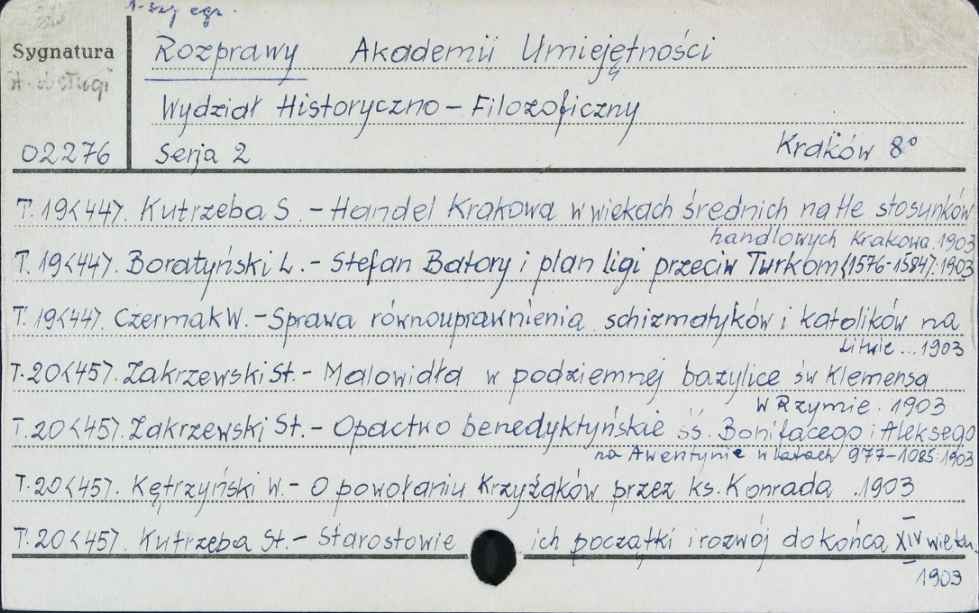 1-szy egz.
Sygnatura Rozprawy Akademii Umiejętności
Wydział Historyczno - Filozoficzny
02276 Serja 2 Kraków 8°
T. 19<44>. Kutrzeba S. - Handel Krakowa w wiekach średnich na tle stosunków
handlowych Krakowa. 1903
T. 19<44>. Boratyński L. - Stefan Batory i plan ligi przeciw Turkom <1576-1584>. 1903
T. 19<44>. Czermak W. - Sprawa równouprawnienia schizmatyków i katolików na
Litwie... 1903
T. 20<45>. Zakrzewski St. - Malowidła w podziemnej bazylice św Klemensa
w Rzymie. 1903
T. 20<45>. Zakrzewski St. - Opactwo benedyktyńskie śś. Bonifacego i Aleksego
na Awentynie w latach 977-1085. 1903
T. 20<45>. Kętrzyński W. - O powołaniu Krzyżaków przez ks. Konrada. 1903
T. 20<45>. Kutrzeba St. - Starostowie ich początki i rozwój do końca XIV wieku.
1903